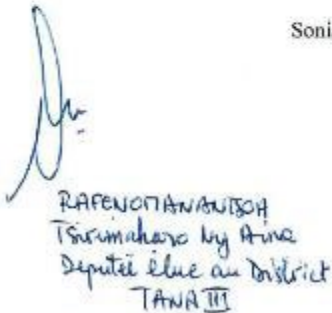 Soni
RAFENOMANANTSOA
Tsirimaharo Ny Aina
Deputée élue au District
TANA III